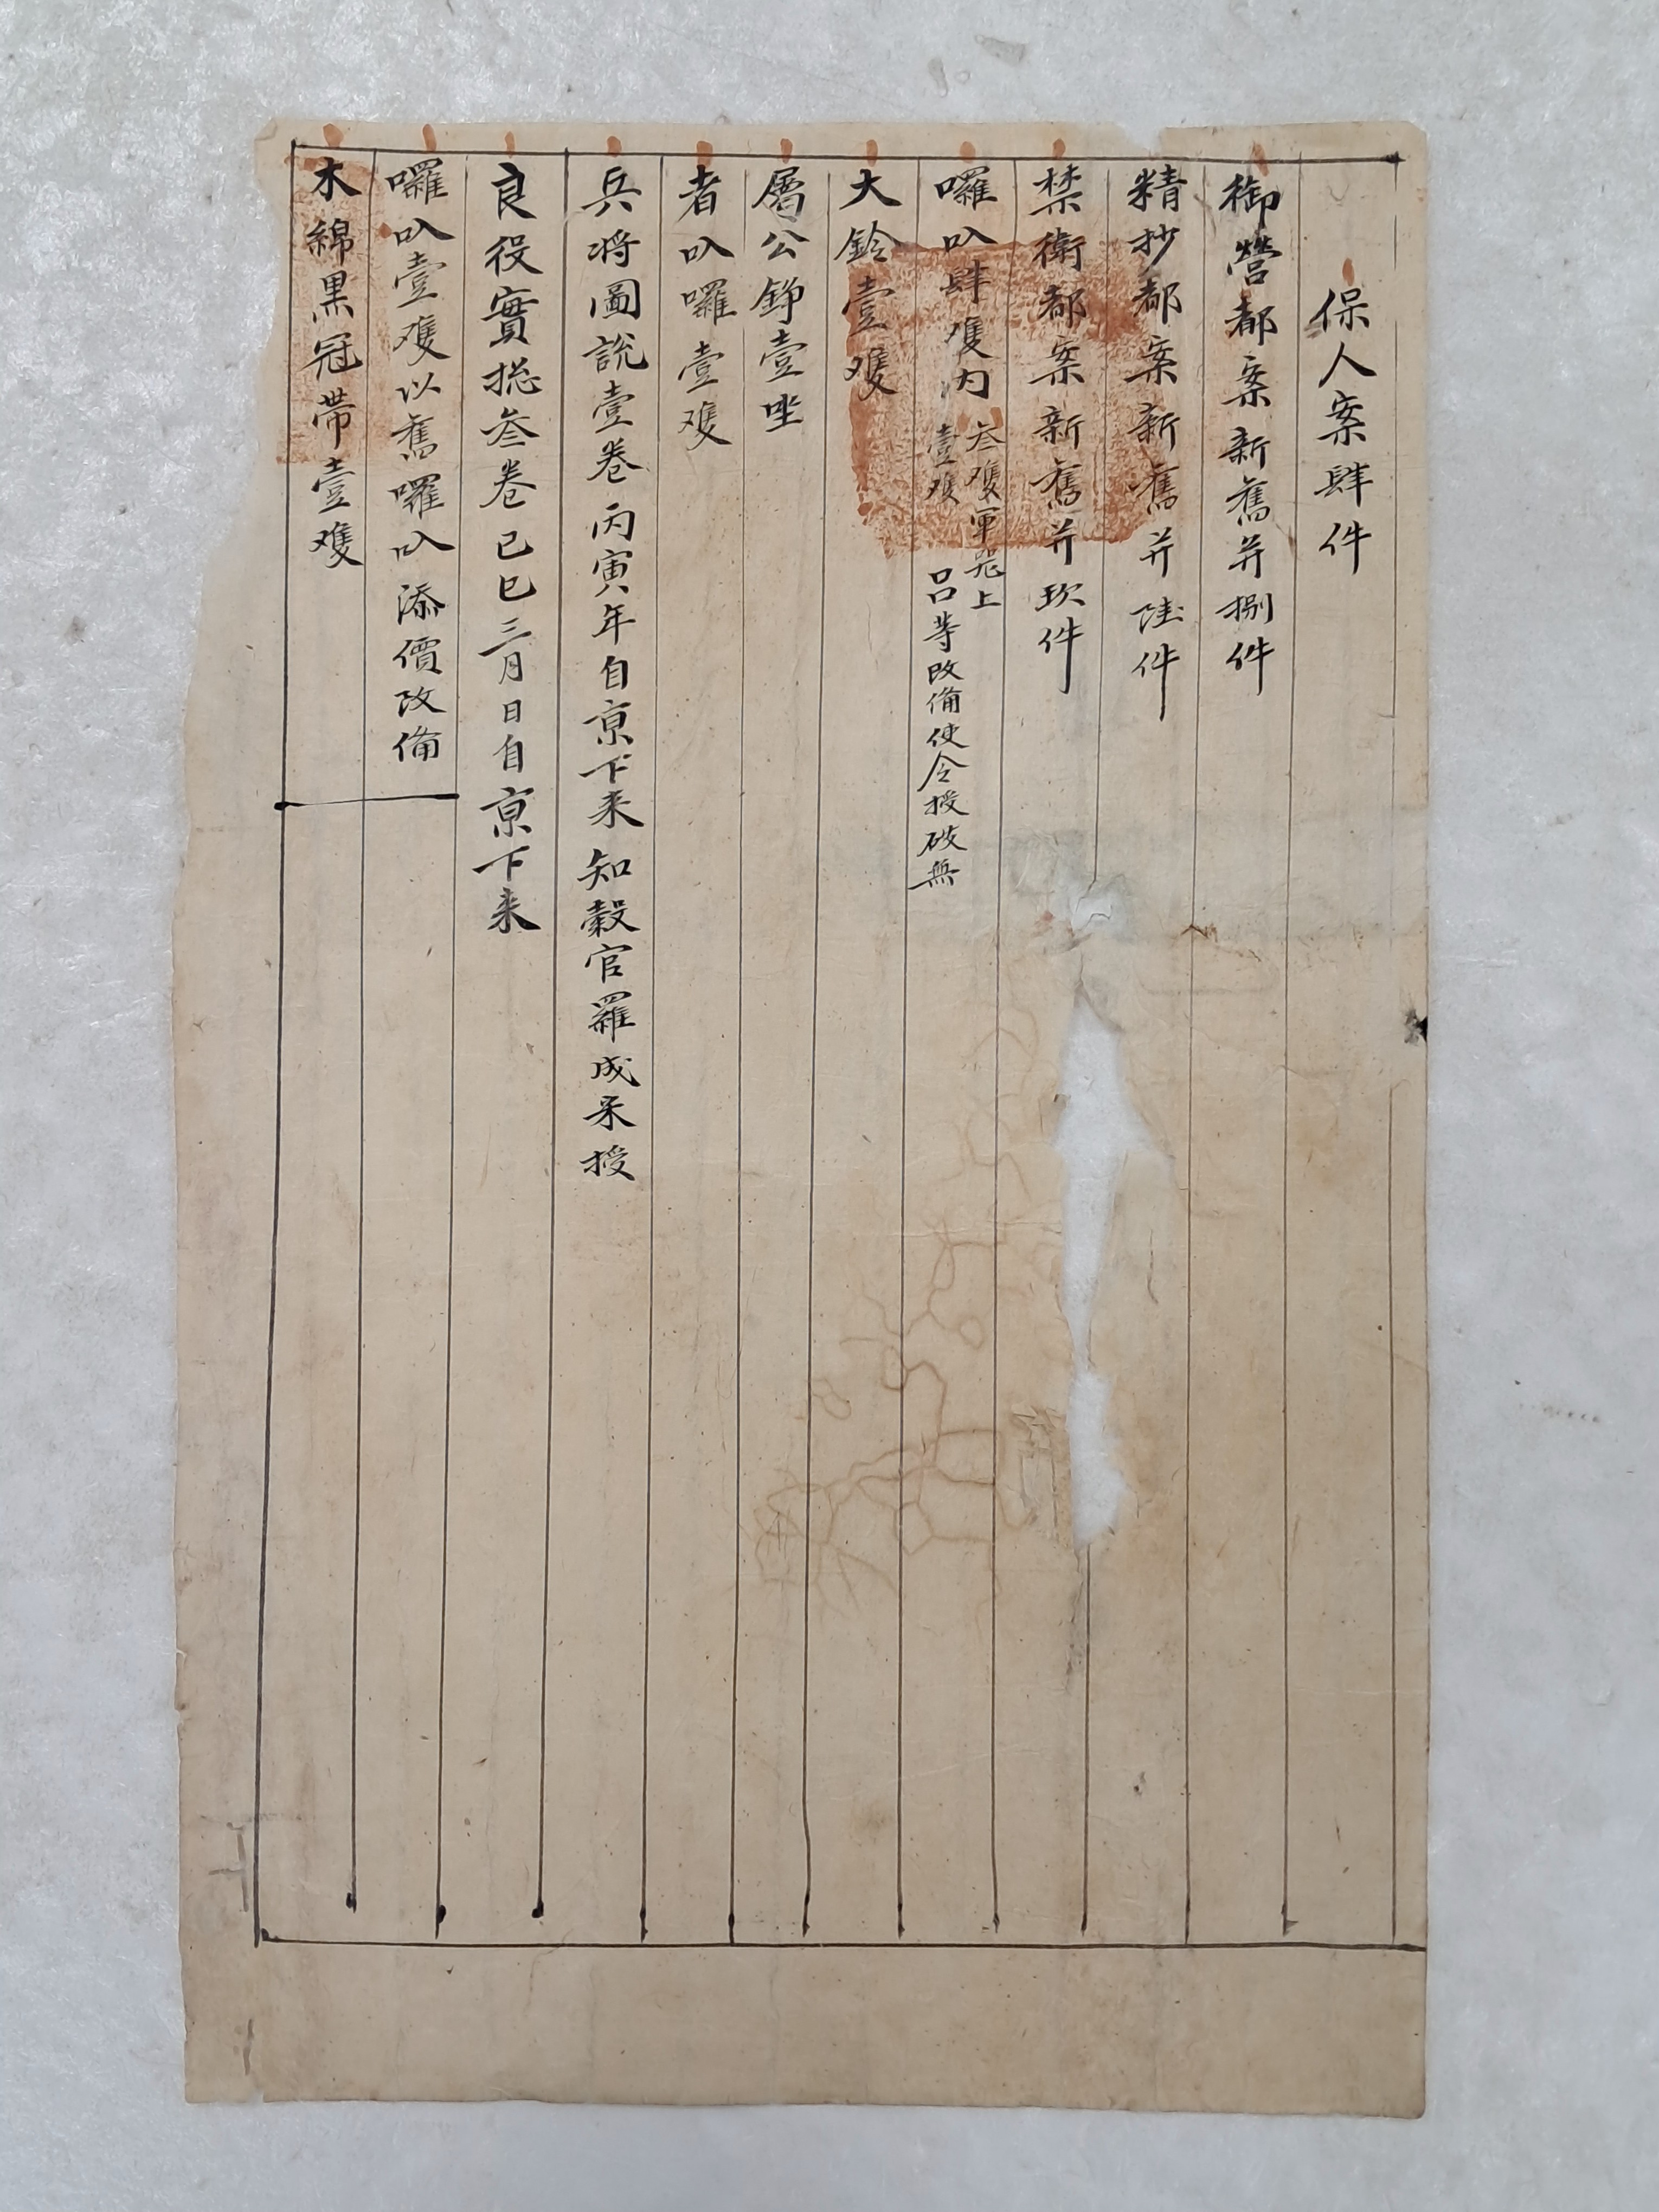 保人案肆件
御營都案新舊并捌件
精抄都案新舊并陸件
禁衛都案新舊并玖件
囉叺肆雙内
叁雙軍器上
壹雙 呂等改備使令授破無
大鈴壹雙
層公錚壹坐
者叺囉壹雙
兵將圖說壹卷丙寅年自京下来知彀官羅成采授
良役實摠叁卷己巳三月日自京下来
囉叺壹雙以舊囉叺添價改備
木綿黑冠帶壹雙